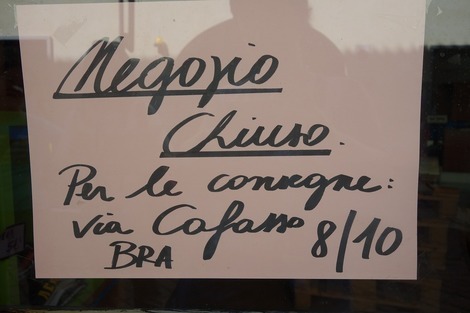 Negozio
Chiuso.
Per le consegne:
via Cafasso 8/10
BRA